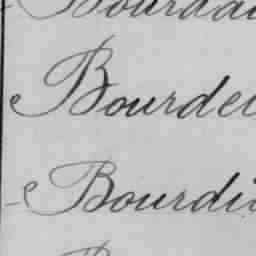 Bourdai
Bourdei
Bourdi